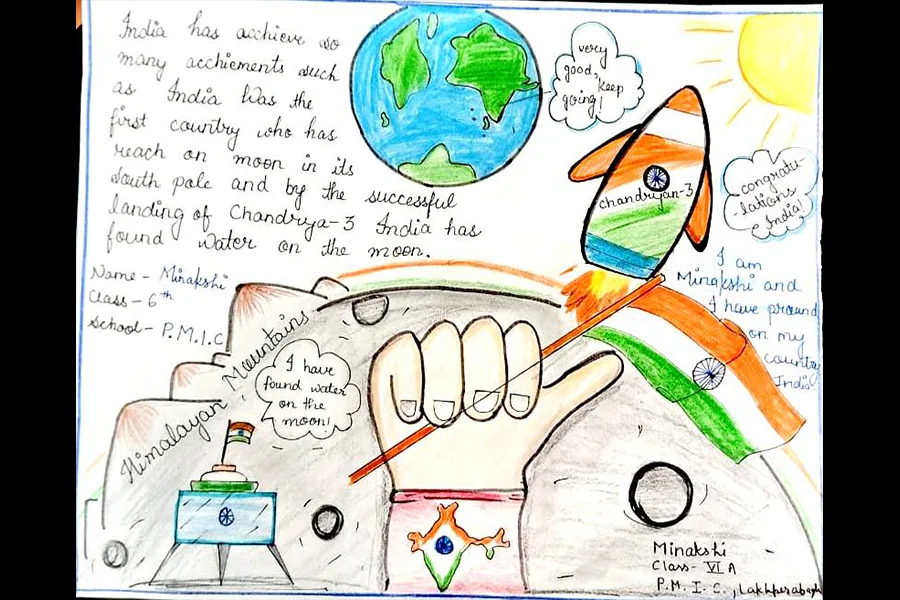 India has acchieve so
many acchiements such
as India Was the
first country who has
reach on moon in its
South pole and by the successful
landing of Chandrya-3 India has
found Water on the moon.
Name - Minakshi
Class - 6th
School - P.M.I.C
very
good, keep
going!
chandryan-3
congratu-
-lations
India!
I am
Minakshi and
I have pround
on my
country
India
Himalayan Mountains
I have
found water
on the
moon!
Minakshi
Class - VI A
P.M.I.C.,